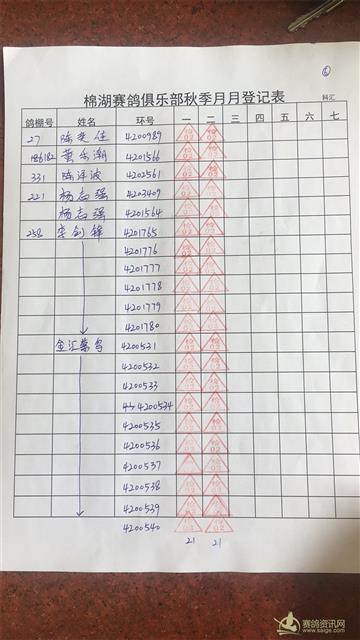 6
棉湖赛鸽俱乐部秋季月月登记表 科汇
鸽棚号 姓名 环号 一 二 三 四 五 六 七
27 陈楚佳 4200989
186182 黄乐潮 4201566
331 陈泽波 4202561
221 杨志强 4203409
杨志强 4201564
258 李剑锋 4201765
4201776
4201777
4201778
4201779
4201780
4200531
4200532
4200533
4200534
4200535
4200536
4200537
4200538
4200539
4200540
21 21
赛鸽资讯网
www.saige.com